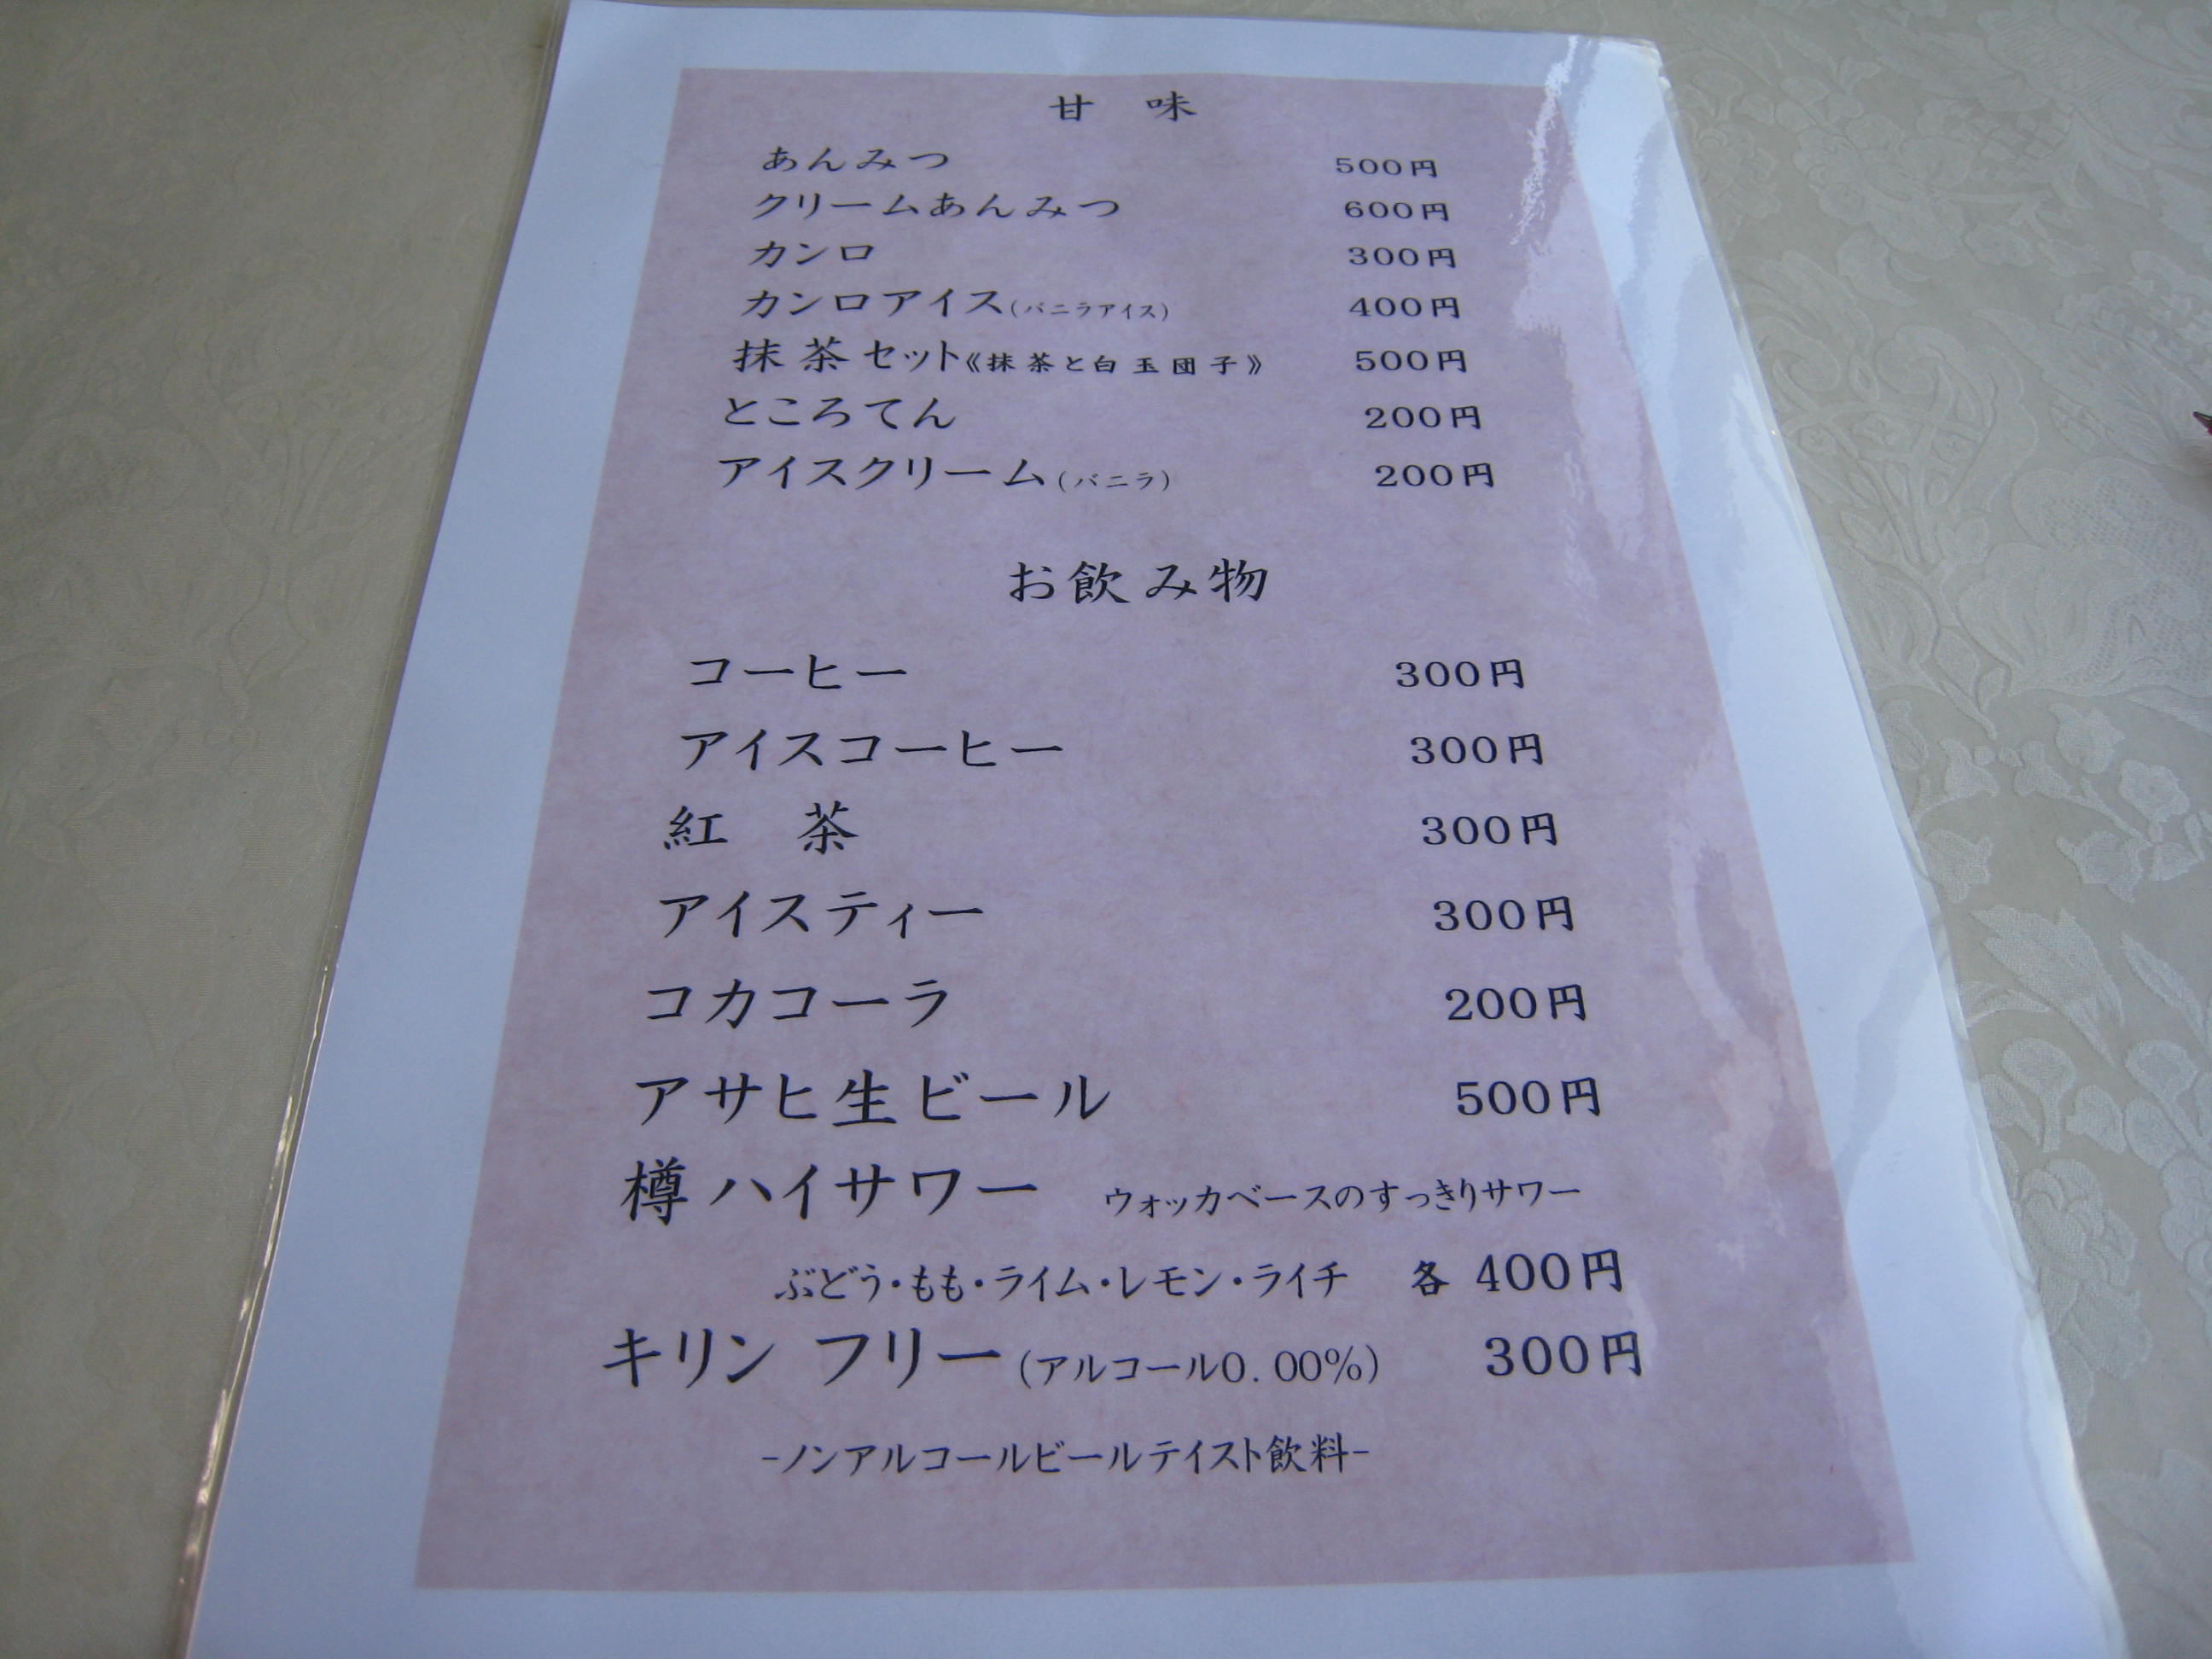 甘 味
あんみつ 500円
クリームあんみつ 600円
カンロ 300円
カンロアイス(バニラアイス) 400円
抹茶セット《抹茶と白玉団子》 500円
ところてん 200円
アイスクリーム(バニラ) 200円
お飲み物
コーヒー 300円
アイスコーヒー 300円
紅 茶 300円
アイスティー 300円
コカコーラ 200円
アサヒ生ビール 500円
樽ハイサワー ウォッカベースのすっきりサワー
ぶどう・もも・ライム・レモン・ライチ 各 400円
キリン フリー(アルコール0.00%) 300円
-ノンアルコールビールテイスト飲料-